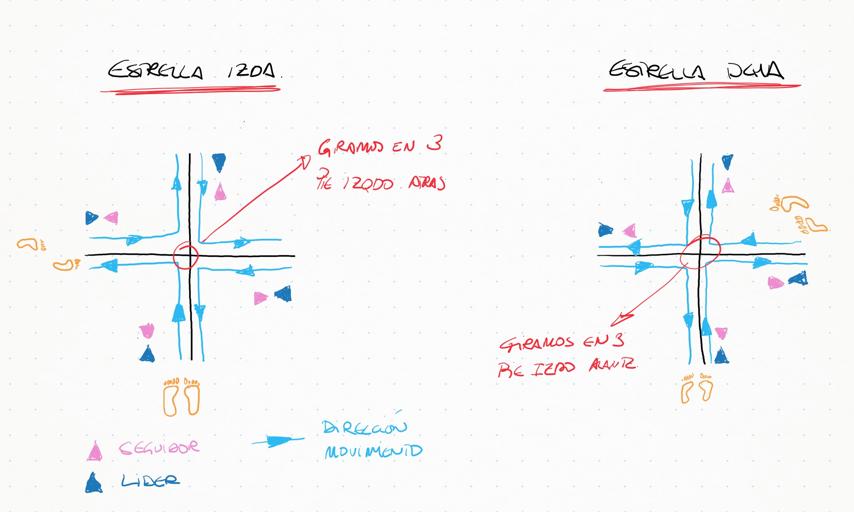 ESTRELLA IZDA.
ESTRELLA DCHA
GIRAMOS EN 3
PIE IZQDO ATRAS
GIRAMOS EN 3
PIE IZDO ALANTE
SEGUIDOR
LIDER
DIRECCIÓN
MOVIMIENTO